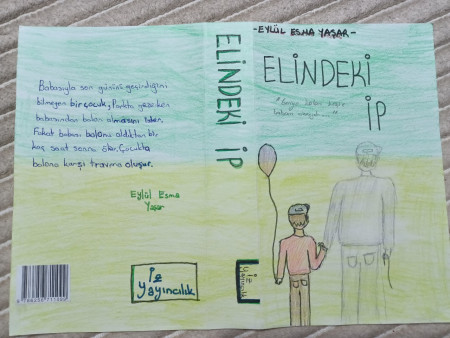 Babasıyla son gününü geçirdiğini
bilmeyen bir çocuk, Parkta gezerken
babasından balon almasını ister.
Fakat babası balonu aldıktan bir
kaç saat sonra ölür. Çocukta
balona karşı travma oluşur.
Eylül Esma
Yaşar
İz
Yayıncılık
ELİNDEKİ İP
İz
Yayıncılık
-EYLÜL ESMA YAŞAR-
ELİNDEKİ
İP